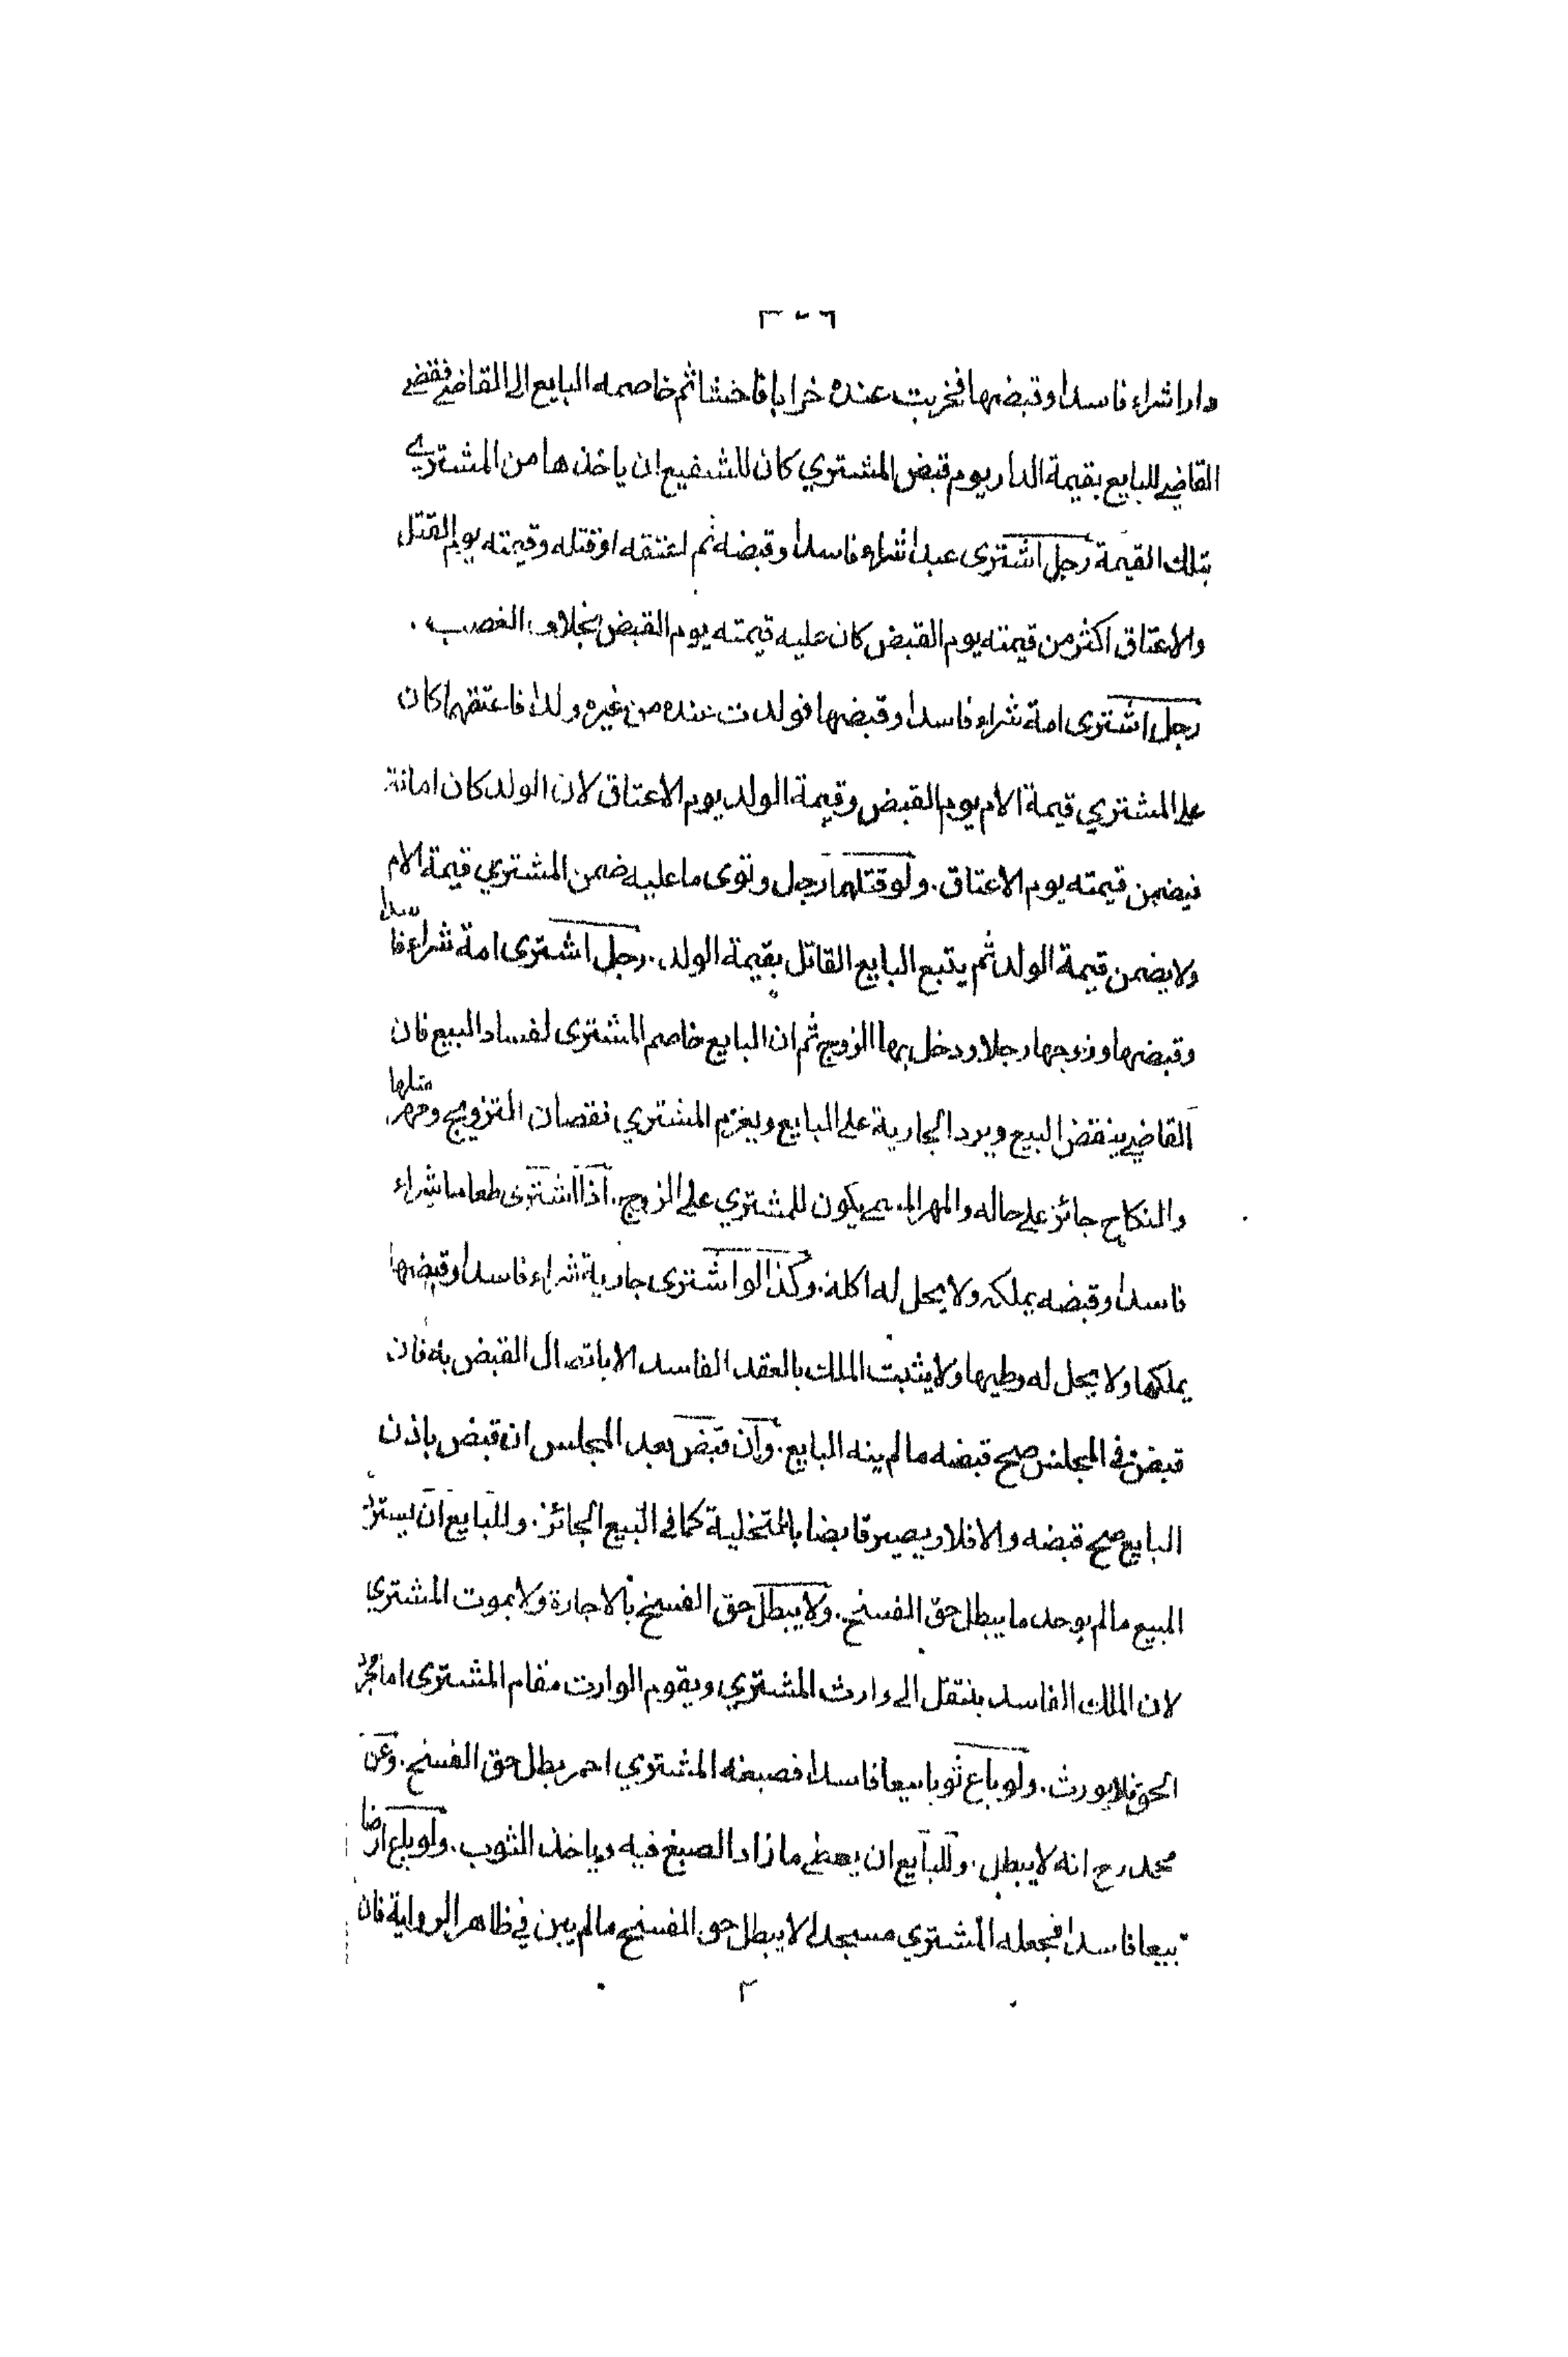 ٣٠٦
دارا شراء فاسدا وقبضها فخربت عنده خرابا فاحشا ثم خاصمه البايع الى القاضي فقضى
القاضي للبايع بقيمة الدار يوم قبض المشتري كان للشفيع ان ياخذها من المشتري
بتلك القيمة رجل اشترى عبدا شراء فاسدا وقبضه ثم اعتقه او قتله وقيمته يوم القتل
والاعتاق اكثر من قيمته يوم القبض كان عليه قيمته يوم القبض بخلاف الغصب .
رجل اشترى امة شراء فاسدا وقبضها فولدت عنده من غيره ولدا فاعتقهما كان
على المشتري قيمة الام يوم القبض وقيمة الولد يوم الاعتاق لان الولد كان امانة
فيضمن قيمته يوم الاعتاق . ولو قتلهما رجل وتوى ما عليه ضمن المشتري قيمة الام
ولا يضمن قيمة الولد ثم يتبع البايع القاتل بقيمة الولد . رجل اشترى امة شراء فاسدا
وقبضها وزوجها رجلا ودخل بها الزوج ثم ان البايع خاصم المشترى لفساد البيع فان
القاضي ينقض البيع ويرد الجارية على البايع ويغرم المشتري نقصان التزويج ومهر مثلها
والنكاح جائز على حاله والمهر المسمى يكون للمشتري على الزوج . اذا اشترى طعاما شراء
فاسدا وقبضه يملكه ولا يحل له اكله . وكذا لو اشترى جارية شراء فاسدا وقبضها
يملكها ولا يحل له وطيها ولا يثبت الملك بالعقد الفاسد الا باتصال القبض به فان
قبض في المجلس صح قبضه ما لم ينه البايع . وان قبض بعد المجلس ان قبض باذن
البايع صح قبضه والا فلا ويصير قابضا بالتخلية كما في البيع الجائز . وللبايع ان يسترد
المبيع ما لم يوجد ما يبطل حق الفسخ . ولا يبطل حق الفسخ بالاجارة ولا بموت المشتري
لان الملك الفاسد ينتقل الى وارث المشتري ويقوم الوارث مقام المشترى اما مجرد
الحق فلا يورث . ولو باع ثوبا بيعا فاسدا فصبغه المشتري احمر بطل حق الفسخ . وعن
محمد رح انه لا يبطل . وللبايع ان يعطى ما زاد الصبغ فيه وياخذ الثوب . ولو باع ارضا
بيعا فاسدا فجعله المشتري مسجدا لا يبطل حق الفسخ ما لم يبن في ظاهر الرواية فان